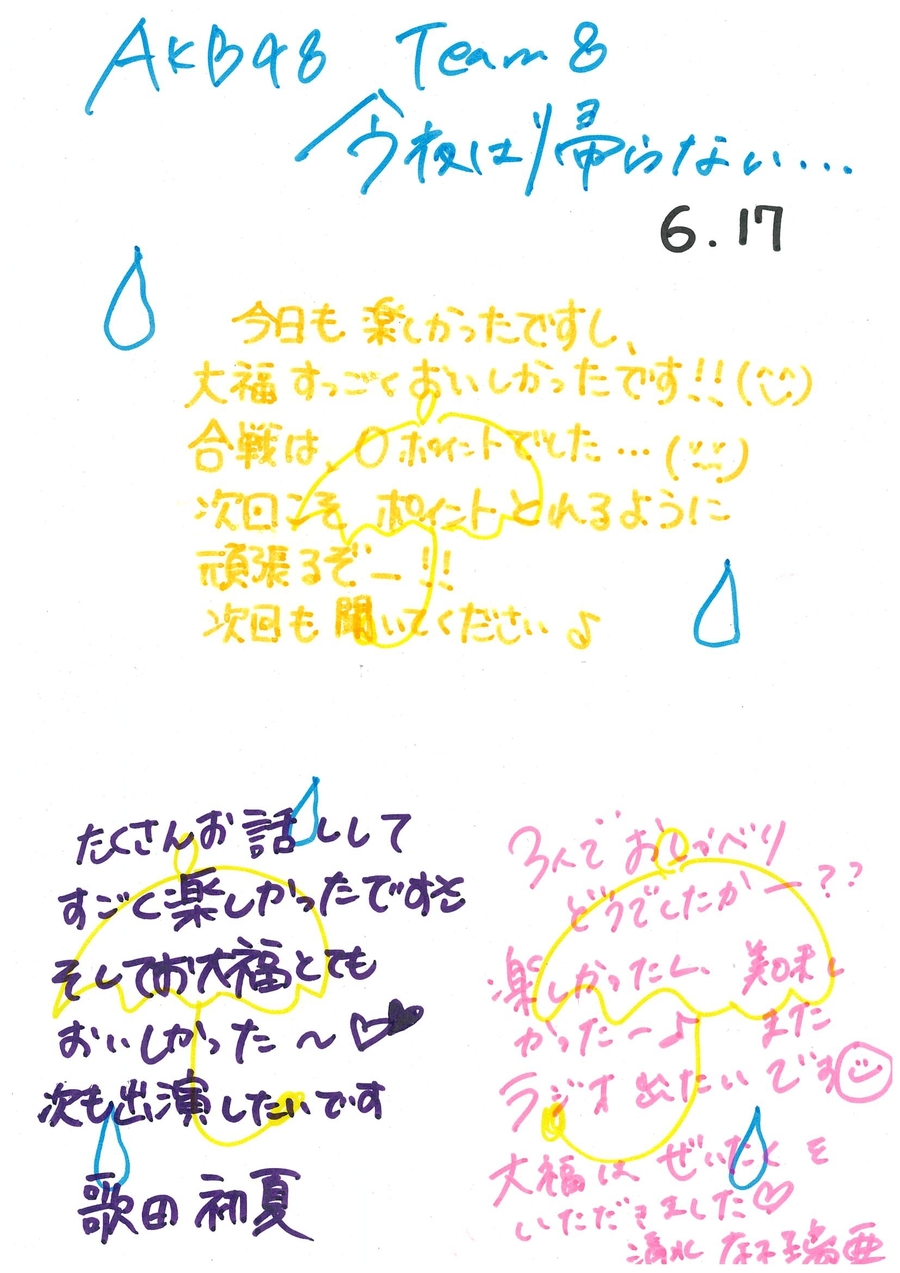 AKB48 Team 8
今夜は帰らない...
6.17
今日も楽しかったですし、
大福すっごくおいしかったです!!(
合戦は、0ポイントでした…(
次回こそ ポイントとれるように
頑張るぞー!!
次回も聞いてください♪
たくさんお話しして
すごく楽しかったです
そしてお大福とても
おいしかった〜♡♥
次も出演したいです
歌田 初夏
3人でおしゃべり
どうでしたかー??
楽しかったし、美味し
かったー♪ また
ラジオ出たいです
大福はぜいたくを
いただきました♡
清水 麻璃亜